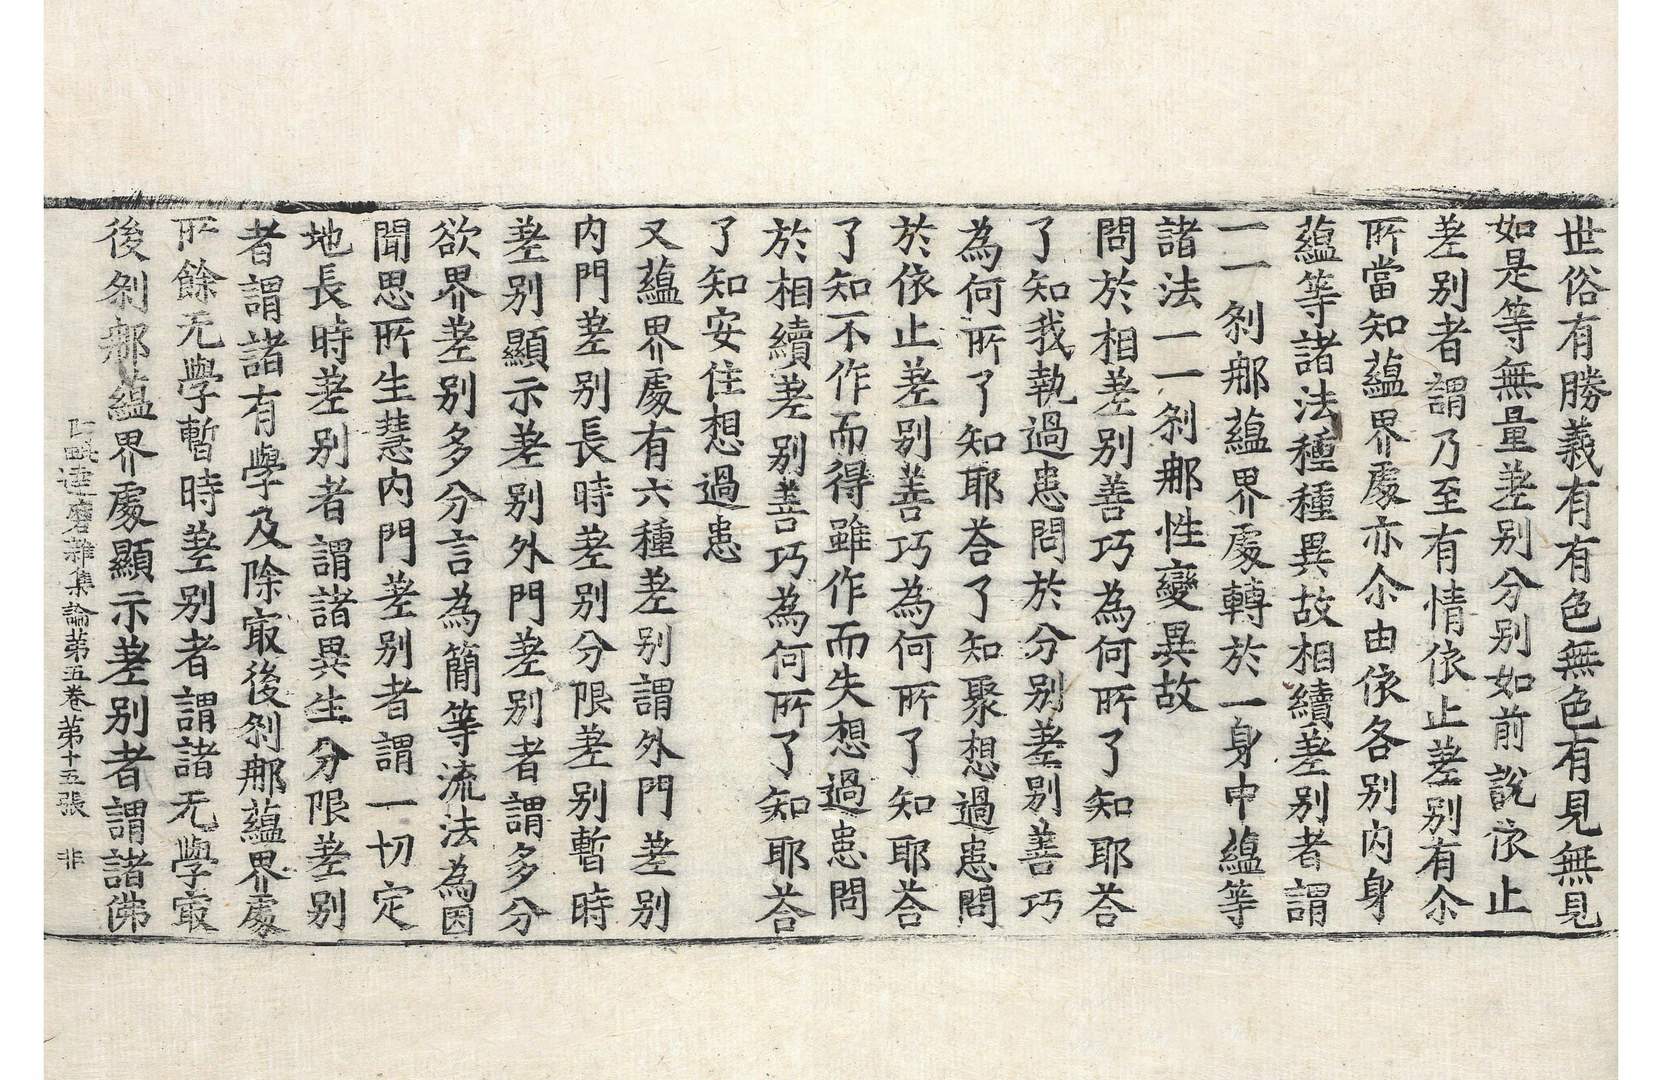 世俗有勝義有有色無色有見無見
如是等無量差別分別如前說依止
差別者謂乃至有情依止差別有尒
所當知蘊界處亦尒由依各別內身
蘊等諸法種種異故相續差別者謂
一一刹那蘊界處轉於一身中蘊等
諸法一一刹那性變異故
問於相差別善巧為何所了知耶荅
了知我執過患問於分別差別善巧
為何所了知耶荅了知聚想過患問
於依止差別善巧為何所了知耶荅
了知不作而得雖作而失想過患問
於相續差別善巧為何所了知耶荅
了知安住想過患
又蘊界處有六種差別謂外門差別
內門差別長時差別分限差別暫時
差別顯示差別外門差別者謂多分
欲界差別多分言為簡等流法為因
聞思所生慧內門差別者謂一切定
地長時差別者謂諸異生分限差別
者謂諸有學及除冣後刹那蘊界處
所餘无學暫時差別者謂諸无學冣
後刹那蘊界處顯示差別者謂諸佛
達磨雜集論第五卷第十五張 非